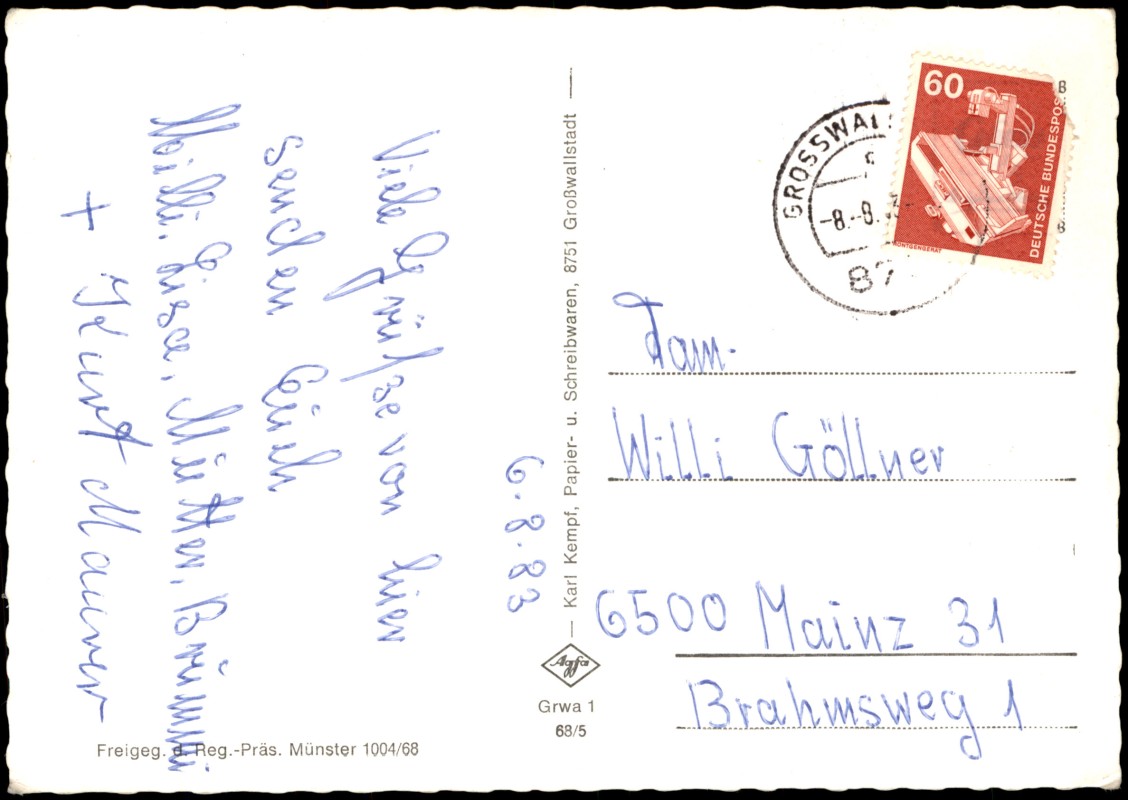 6.8.83
Viele Grüße von hier
senden Euch
Willi, Liesa, Mutter,
+ Kurt Maurer
Karl Kempf, Papier- u. Schreibwaren, 8751 Großwallstadt
Agfa
Grwa 1
68/5
Freigeg. d. Reg.-Präs. Münster 1004/68
GROSSWAL
-8.-8.
87
60
DEUTSCHE BUNDESPOS
RÖNTGENGERÄT
Fam.
Willi Göllner
6500 Mainz 31
Brahmsweg 1